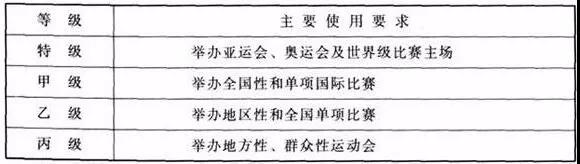 等级 主要使用要求
特级 举办亚运会、奥运会及世界级比赛主场
甲级 举办全国性和单项国际比赛
乙级 举办地区性和全国单项比赛
丙级 举办地方性、群众性运动会